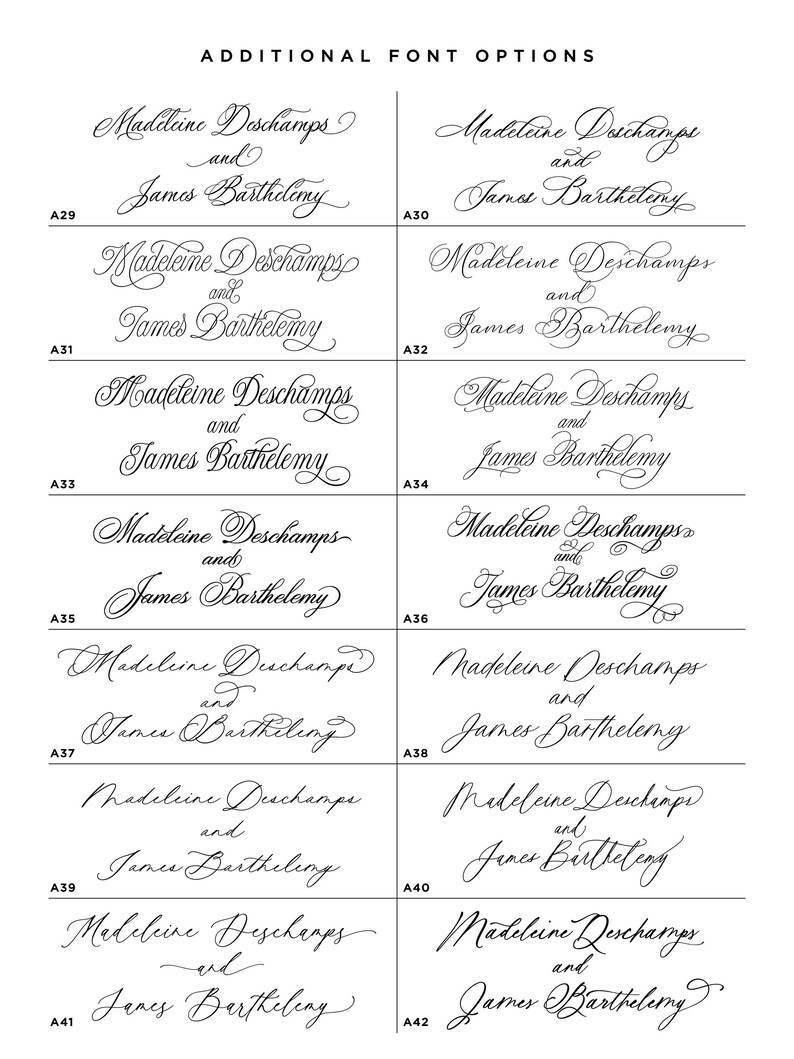 ADDITIONAL FONT OPTIONS
Madeleine Deschamps
and
James Barthelemy
A29
Madeleine Deschamps
and
James Barthelemy
A30
Madeleine Deschamps
and
James Barthelemy
A31
Madeleine Deschamps
and
James Barthelemy
A32
Madeleine Deschamps
and
James Barthelemy
A33
Madeleine Deschamps
and
James Barthelemy
A34
Madeleine Deschamps
and
James Barthelemy
A35
Madeleine Deschamps
and
James Barthelemy
A36
Madeleine Deschamps
and
James Barthelemy
A37
Madeleine Deschamps
and
James Barthelemy
A38
Madeleine Deschamps
and
James Barthelemy
A39
Madeleine Deschamps
and
James Barthelemy
A40
Madeleine Deschamps
and
James Barthelemy
A41
Madeleine Deschamps
and
James Barthelemy
A42